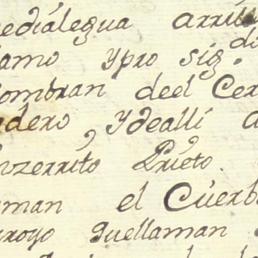 media legua arriv
lamo ypro sig.
di
ombran deel Cer
adero, ydealli a
nzerrito Prieto.
man el Cuerb
rroyo quellaman